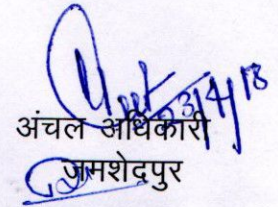 23/4/18
अंचल अधिकारी
जमशेदपुर